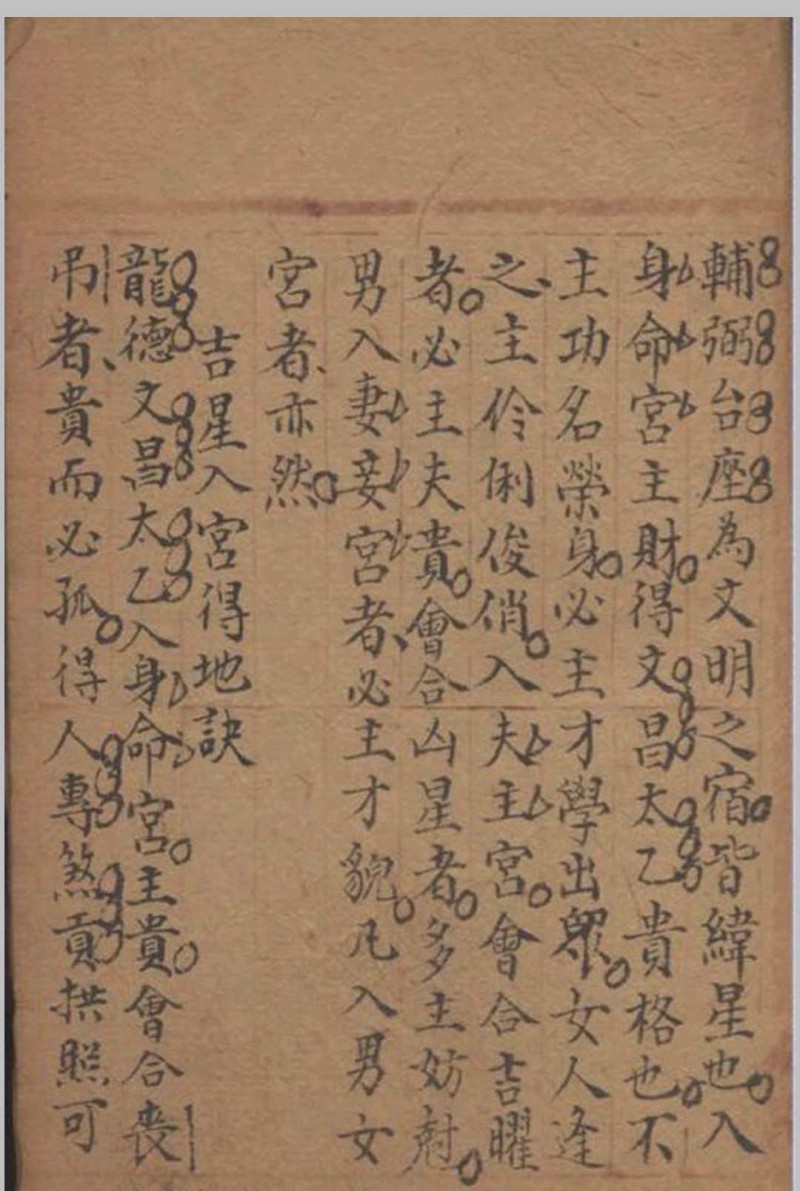 輔弼台座為文明之宿皆緯星也入
身命宮主財得文昌太乙貴格也不
主功名榮身必主才學出眾女人逢
之主伶俐俊俏入夫主宮會合吉曜
者必主夫貴會合凶星者多主妨尅
男入妻妾宮者必主才貌凡入男女
宮者亦然
吉星入宮得地訣
龍德文昌太乙入身命宮主貴會合喪
吊者貴而必孤得人專煞貢拱照可